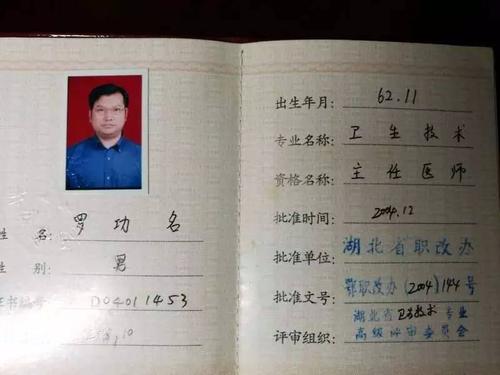 姓 名: 罗功名
性 别: 男
证书编号: D04011453
出生年月: 62.11
专业名称: 卫生技术
资格名称: 主任医师
批准时间: 2004.12
批准单位: 湖北省职改办
批准文号: 鄂职改办(2004)144号
评审组织: 湖北省卫生技术专业
高级评审委员会